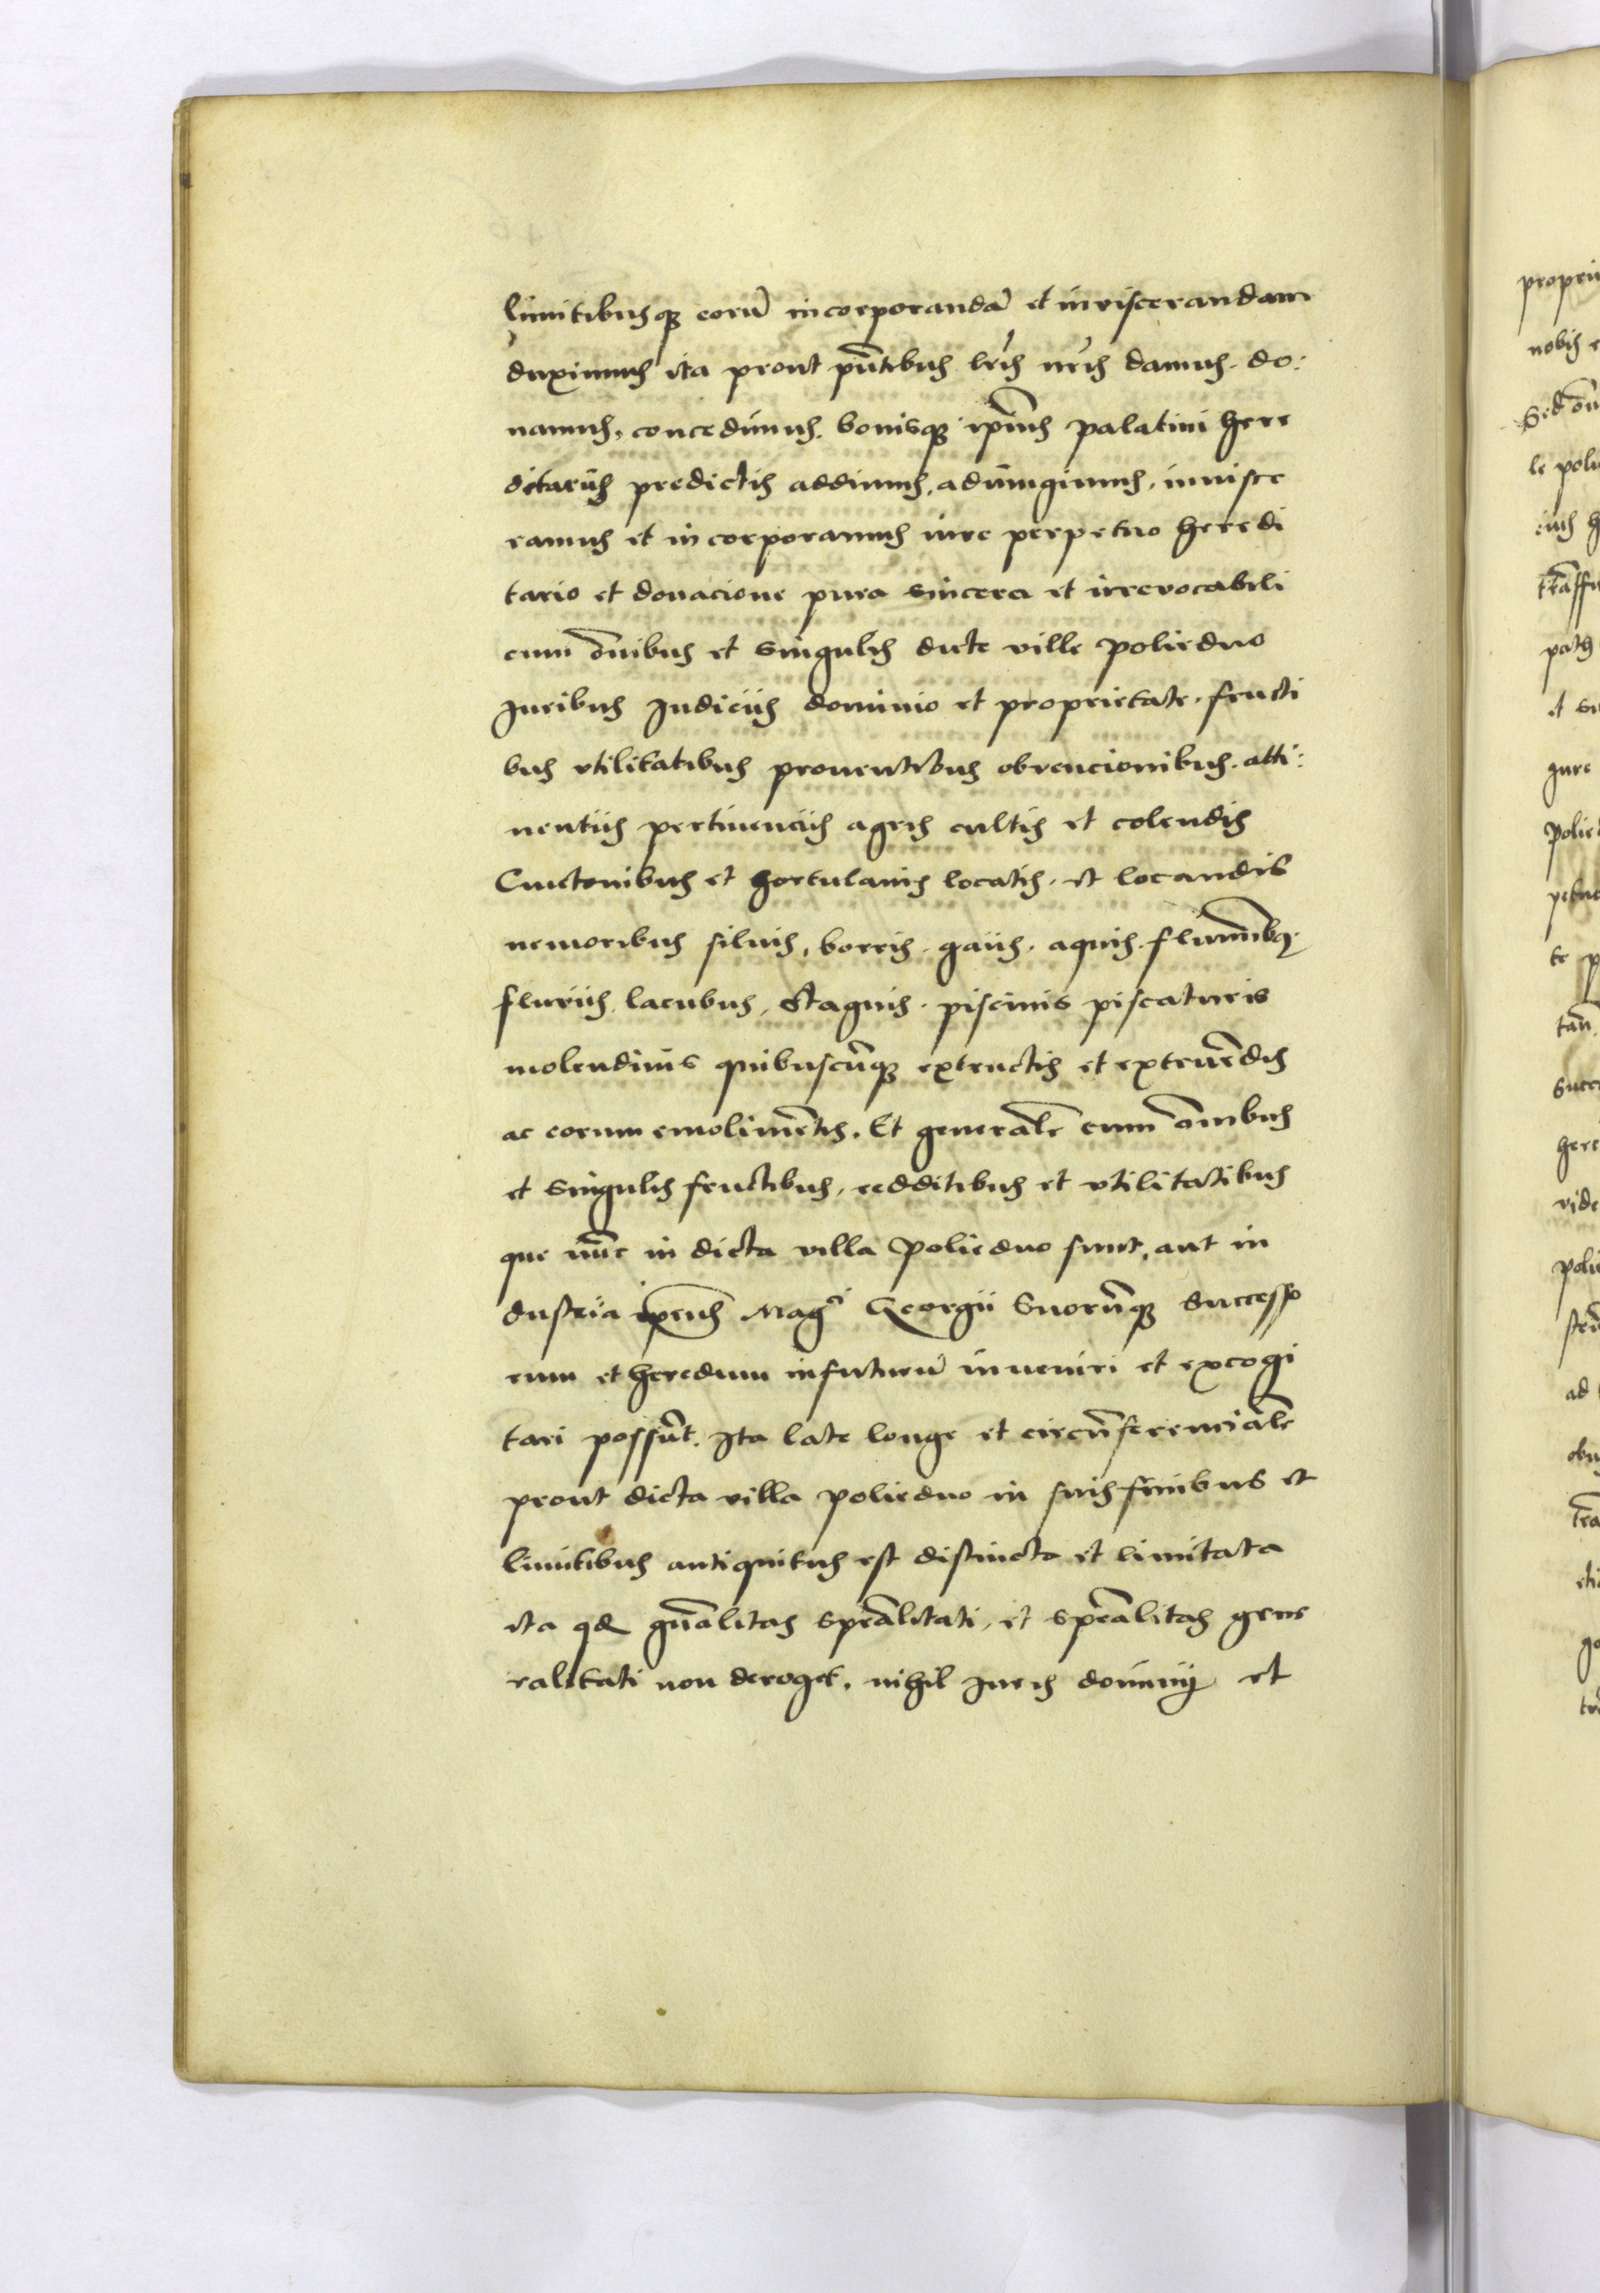 limitibusq3 eorū incorporandā et inviscerandam
duximus ita prout pn̄tibus lr̄is nr̄is damus. do:
namus, concedimus. bonisq3 ip̄ius palatini here
ditarijs predictis addimus, adiungimus, invisce
ramus et incorporamus iure perpetuo heredi
tario et donacione pura sincera et irrevocabili
cum om̄ibus et singulis dicte ville policzno
Iuribus Iudicijs dominio et proprietate. fructi
bus vtilitatibus proventibus obvencionibus. atti:
nentijs pertinencijs agris cultis et colendis
Cmetonibus et hortulanis locatis. et locandis
nemoribus siluis, borris. gaijs. aquis. fluminib9.
fluvijs, lacubus, Stagnis. piscinis piscaturis
molendinis quibuscūq3 extructis et extruēdis
ac eorum emolimētis. Et generalr̄ cum om̄ibus
et singulis fructibus, redditibus et vtilitatibus
que nūc in dicta villa policzno sunt, aut in
dustria ip̄ius Mag̃ci Georgii Suorūq3 Successo
rum et heredum infuturū inveniri et excogi
tari possūt. Ita late longe et circūferencialr̄
prout dicta villa policzno in suis finibus et
limitibus antiquitus est distincta et limitata
ita qd gn̄alitas specālitati, et specālitas gene
ralitati non deroget. nihil Iuris dominij et